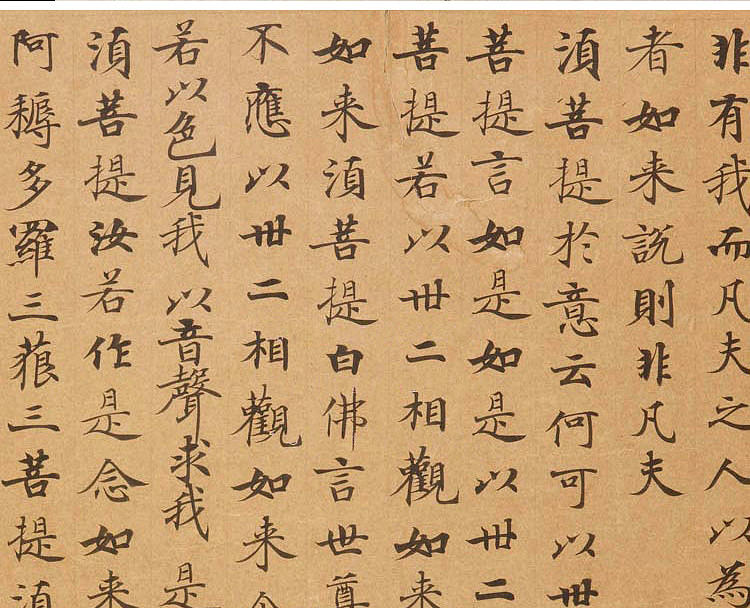 非有我而凡夫之人以為
者如来說則非凡夫
須菩提扵意云何可以丗
菩提言如是如是以丗二
菩提若以丗二相觀如来
如来須菩提白佛言世尊
不應以丗二相觀如来
若以色見我以音聲求我是
須菩提汝若作是念如来
阿耨多羅三藐三菩提須